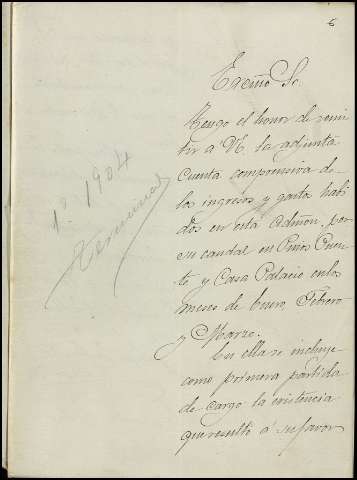 6
Excmo Sr.
Tengo el honor de remi
tir a V.E. la adjunta
cuenta comprensiva de
los ingresos y gastos habi
dos en esta Admon. por
su caudal en Pinos Puen
te y Casa Palacio en los
meses de Enero, Febrero
y Marzo.
En ella se incluye
como primera partida
de cargo la existencia
que resultó á su favor
1º 1904